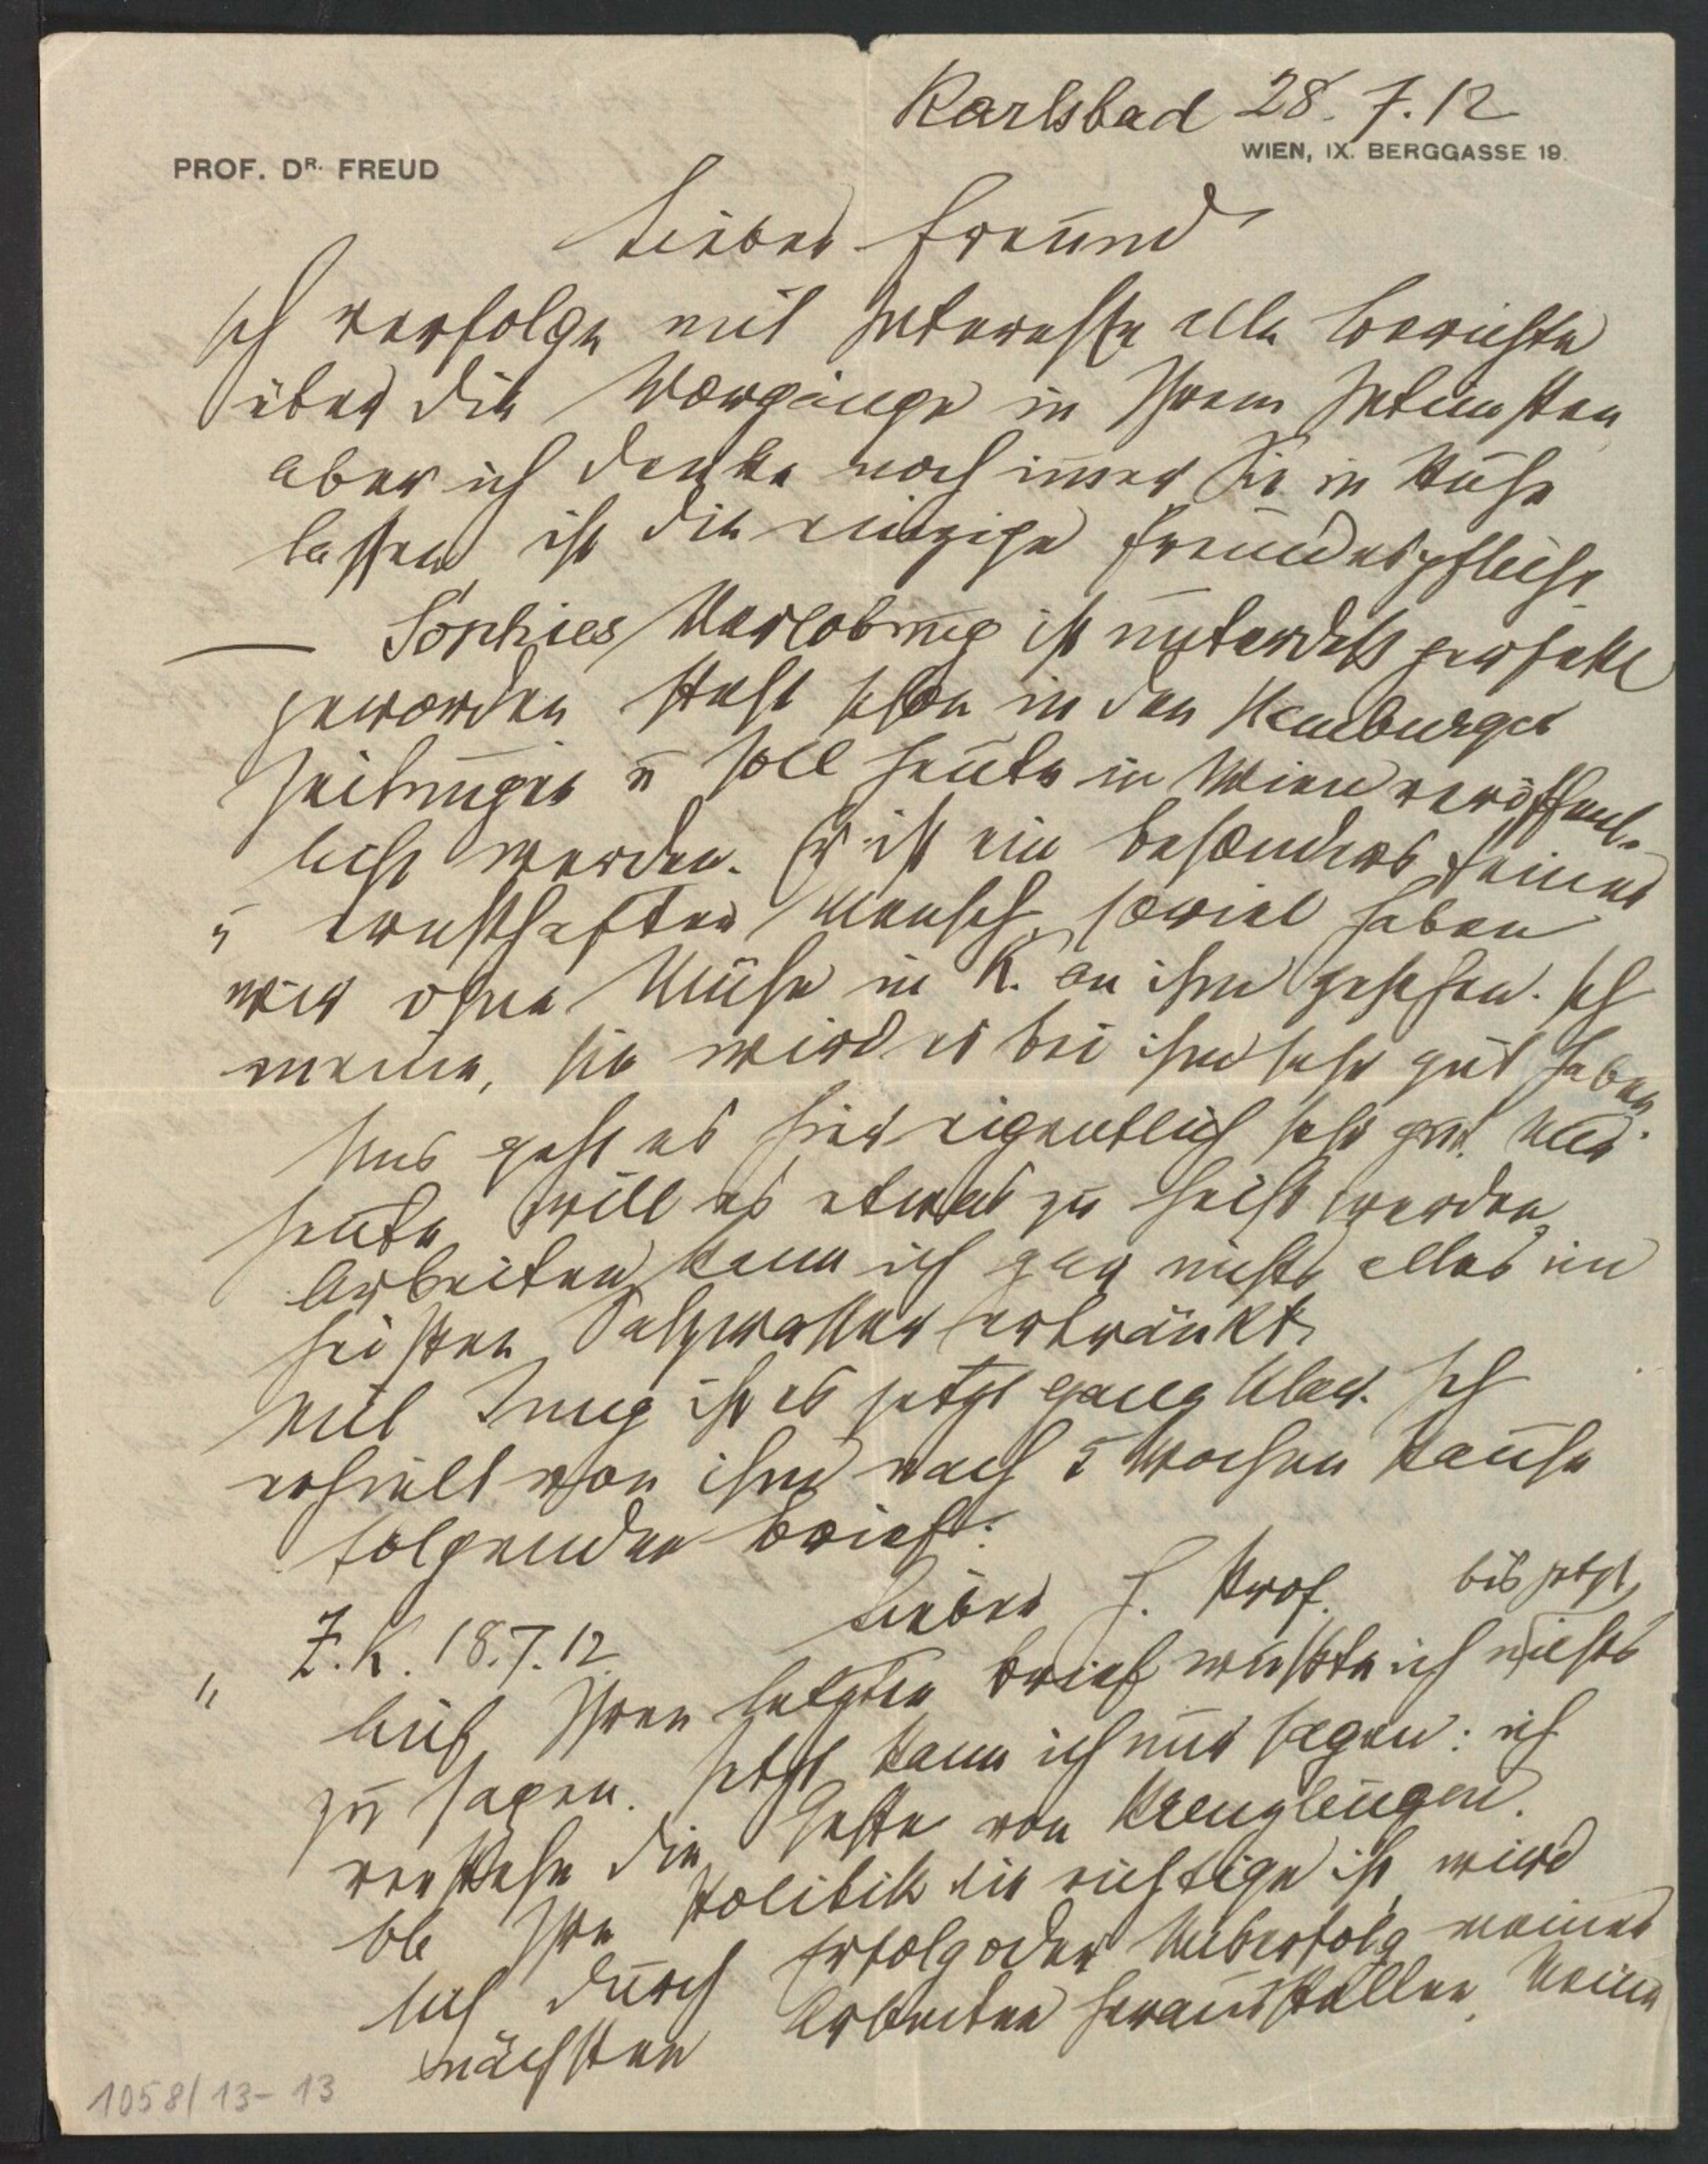 Karlsbad 28. 7. 12
WIEN, IX. BERGGASSE 19.
PROF. DR. FREUD
Lieber Freund
Ich verfolge mit Interesse alle Berichte
über die Vorgänge in Ihrem Intimsten
aber ich denke noch immer Sie in Ruhe
lassen ist die einzige Freundespflicht
— Sophies Verlobung ist unterdeß perfekt
geworden steht schon in den Hamburger
Zeitungen u soll heute in Wien veröffent-
licht werden. Er ist ein besonders feiner
u ernsthafter Mensch, soviel haben
wir ohne Mühe in K. an ihm gesehen. Ich
meine, sie wird es bei ihm sehr gut haben
Uns geht es hier eigentlich sehr gut. Nur
heute will es etwas zu heiß werden
Arbeiten kann ich gar nichts alles im
heißen Salzwasser ertränkt.
Mit Jung ist es jetzt ganz klar. Ich
erhielt von ihm nach 5 Wochen Pause
folgenden Brief:
Lieber H. Prof. bis jetzt
" Z.K. 18.7.12
Auf Ihren letzten Brief wußte ich nichts
zu sagen. Jetzt kann ich nur sagen: ich
verstehe die Geste von Kreuzlingen.
Ob Ihre Politik die richtige ist, wird
sich durch Erfolg oder Mißerfolg meiner
nächsten Arbeiten herausstellen. Meine
1058/13-13